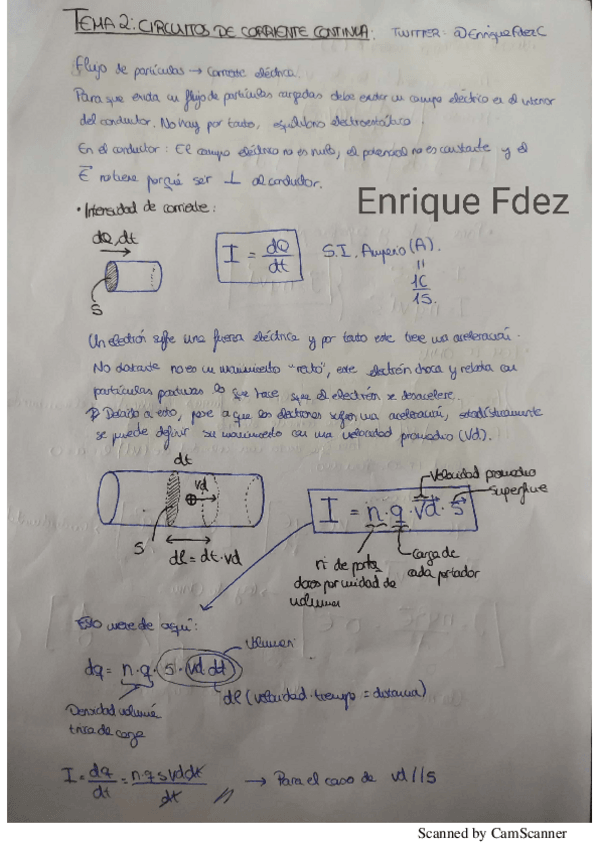 TEMA 2: CIRCUITOS DE CORRIENTE CONTINUA: TWITTER: @EnriqueFdezC
Flujo de partículas → Corriente eléctrica.
Para que exista un flujo de partículas cargadas debe existir un campo eléctrico en el interior
del conductor. No hay por tanto, equilibrio electrostático.
En el conductor: El campo eléctrico no es nulo, el potencial no es constante y el
E no tiene porqué ser ⊥ al conductor.
Enrique Fdez
• Intensidad de corriente:
dQ, dt
S
I = dQ/dt
S.I. Amperio (A).
"
1C
1S.
Un electrón sufre una fuerza eléctrica y por tanto este tiene una aceleración.
No obstante no es un movimiento "recto", este electrón choca y rebota con
partículas positivas lo que hace que el electrón se desacelere.
Debido a esto, pese a que los electrones sufren una aceleración, estadísticamente
se puede definir su movimiento con una velocidad promedio (Vd).
dt
vd
S
dl = dt·vd
I = n·q·vd·S
Velocidad promedio
superficie
nº de porta
dores por unidad de
volumen
carga de
cada portador
Esto viene de aquí:
Volumen
dq = n·q·S·vd dt
dl (velocidad·tiempo = distancia)
Densidad volumé
trica de carga
I = dq/dt = n·q·S·vd·dt/dt → Para el caso de vd//S
Scanned by CamScanner